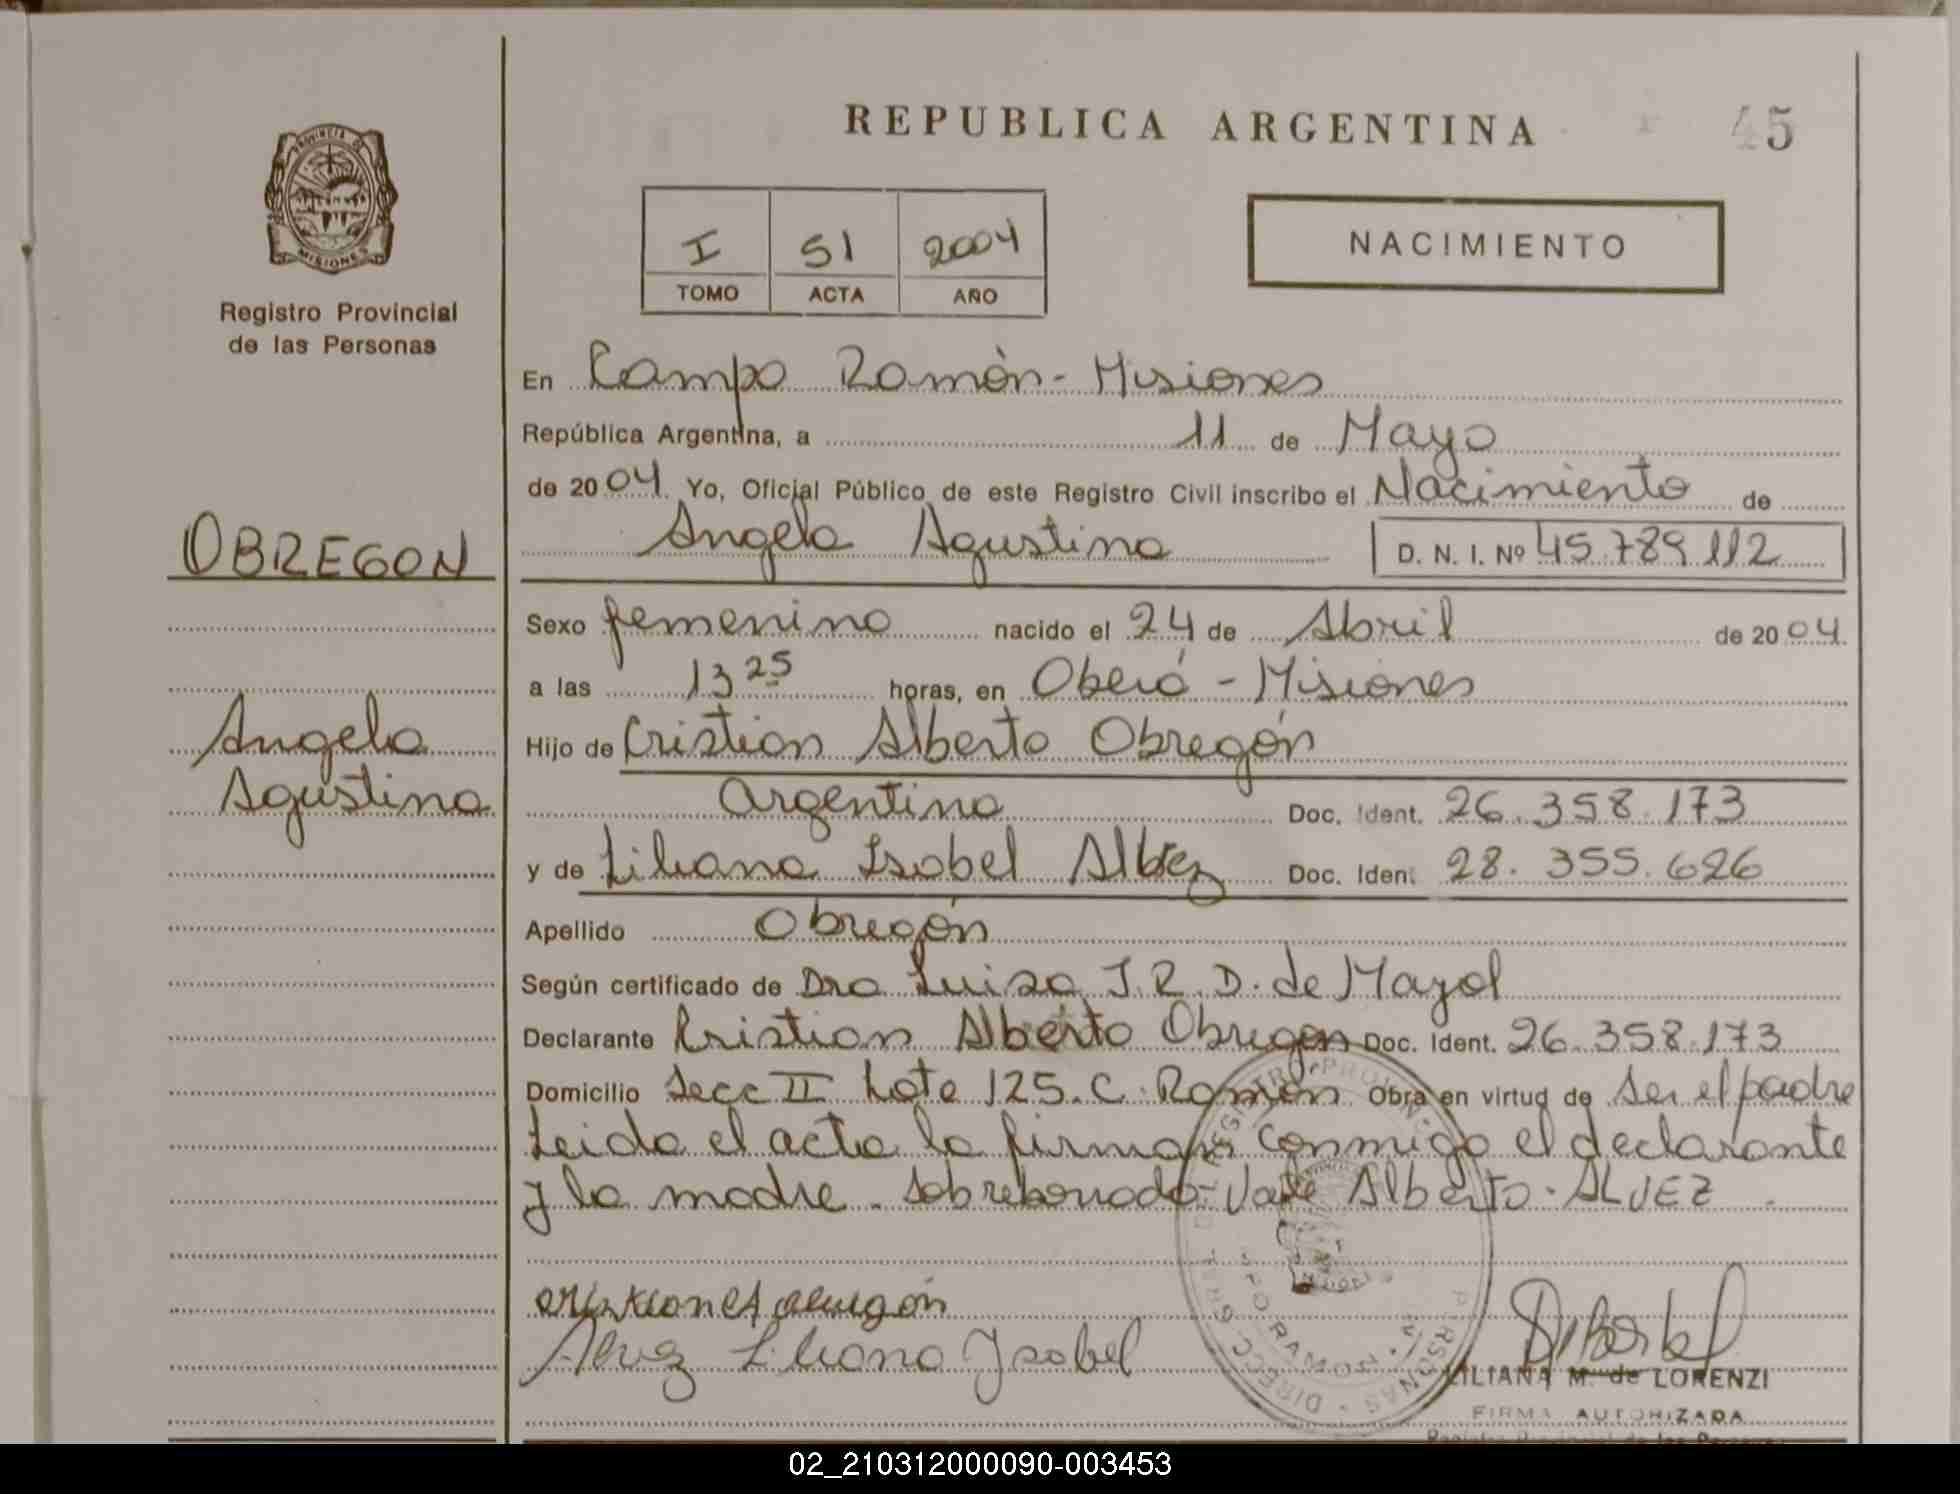 REPUBLICA ARGENTINA
45
PROVINCIA DE
MISIONES
Registro Provincial
de las Personas
I 51 2004
TOMO ACTA AÑO
NACIMIENTO
En Campo Ramón - Misiones
República Argentina, a 11 de Mayo
de 2004. Yo, Oficial Público de este Registro Civil inscribo el Nacimiento de
Angela Agustina D. N. I. Nº 45.789.112
OBREGON
Angela
Agustina
Sexo femenino nacido el 24 de Abril de 2004.
a las 13 25 horas, en Oberá - Misiones
Hijo de Cristian Alberto Obregón
argentino Doc. Ident. 26.358.173
y de Liliana Isabel Albez Doc. Ident 28.355.626
Apellido Obregón
Según certificado de Dra Luisa J. R. D. de Mayol
Declarante Cristian Alberto Obregon Doc. Ident. 26.358.173
Domicilio Secc II Lote 125. C. Ramón Obra en virtud de ser el padre
Leida el acta la firman conmigo el declarante
y la madre. Sobreborrado - Vale Alberto. ALVEZ
obregón
Alvez Liliana Isabel
LILIANA M. de LORENZI
FIRMA AUTORIZADA
02_210312000090-003453